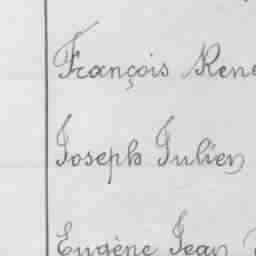 François René
Joseph Julien
Eugène Jean